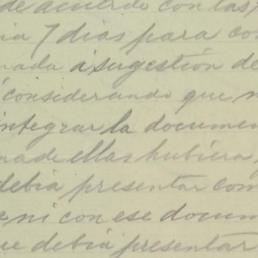 de acuerdo con las
7 dias para
nada a sugestión de
considerando que
integrar la documen
de ellas hubiera
debia presentar com
ni con ese docum
ue debia presentar